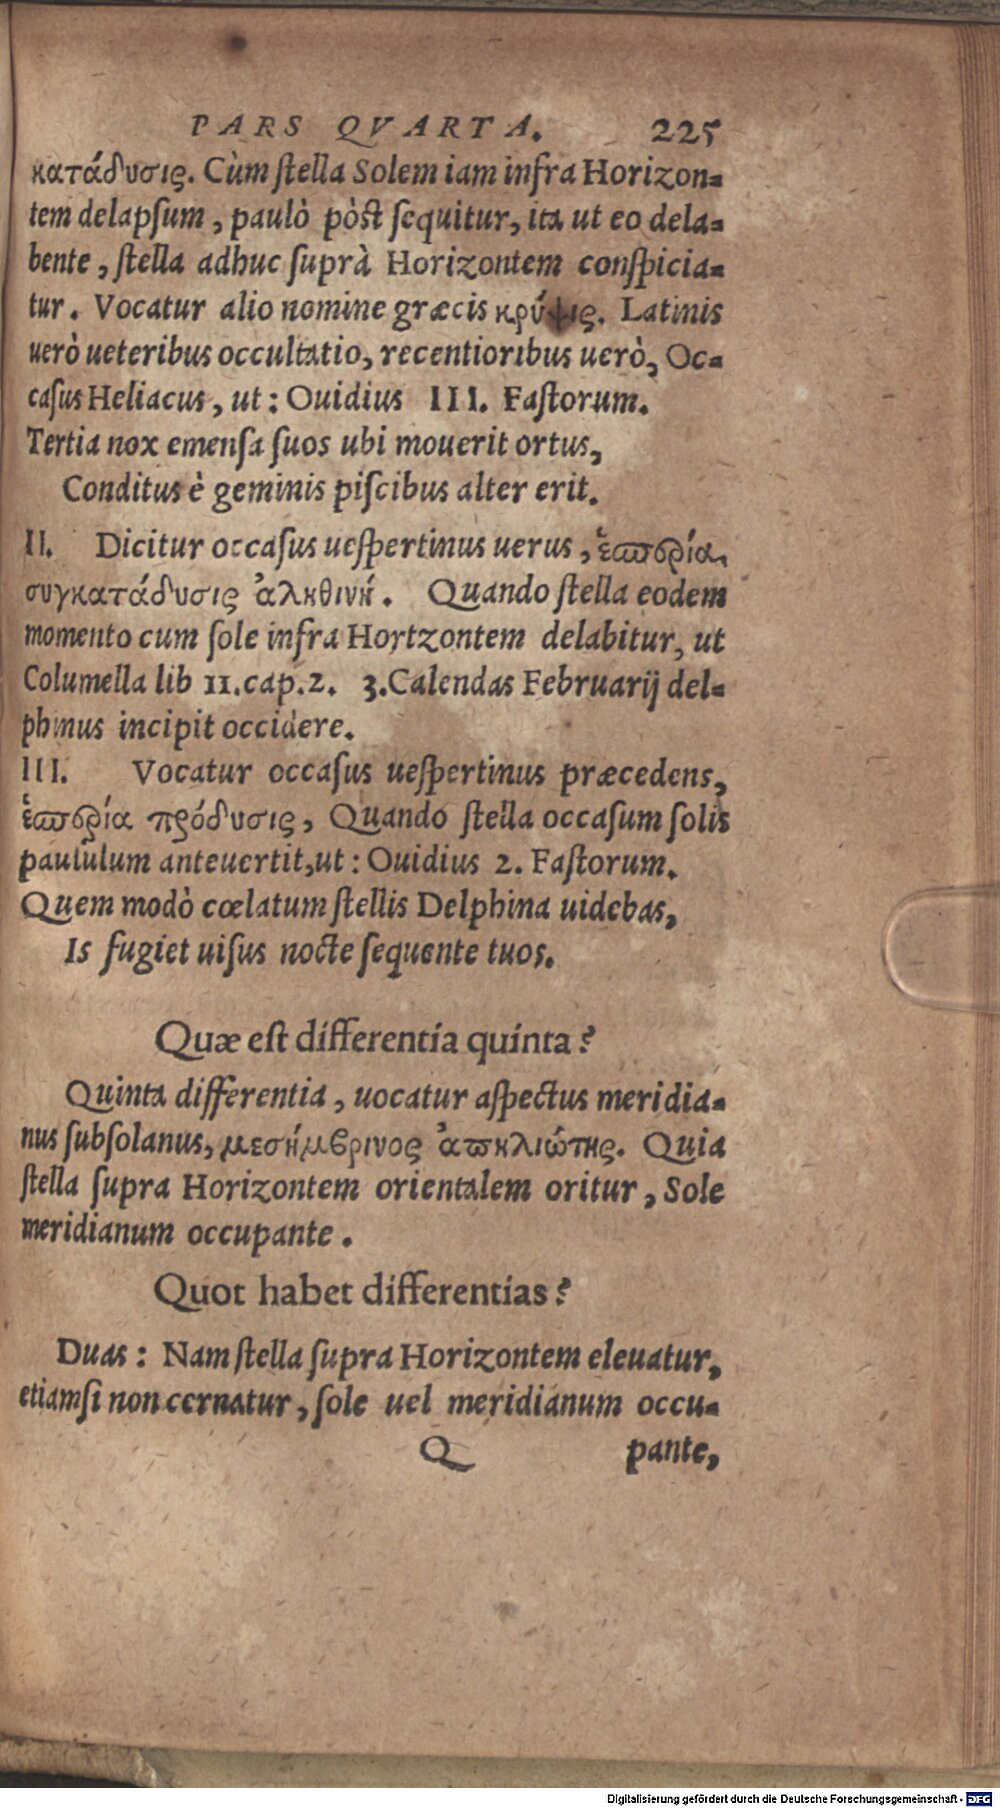 PARS QVARTA. 225
κατάδυσις. Cùm stella Solem iam infra Horizon-
tem delapsum, paulò pòst sequitur, ita ut eo dela-
bente, stella adhuc suprà Horizontem conspicia-
tur. Vocatur alio nomine græcis κρύψις. Latinis
uerò ueteribus occultatio, recentioribus uerò, Oc-
casus Heliacus, ut: Ouidius III. Fastorum.
Tertia nox emensa suos ubi mouerit ortus,
Conditus è geminis piscibus alter erit.
II. Dicitur occasus uespertinus uerus, ἑσπερία
συγκατάδυσις ἀληθινή. Quando stella eodem
momento cum sole infra Hortzontem delabitur, ut
Columella lib 11.cap.2. 3.Calendas Februarij del-
phinus incipit occidere.
III. Vocatur occasus uespertinus præcedens,
ἑσπερία πρόδυσις, Quando stella occasum solis
paululum anteuertit,ut: Ouidius 2. Fastorum.
Quem modò cœlatum stellis Delphina uidebas,
Is fugiet uisus nocte sequente tuos.
Quæ est differentia quinta?
Quinta differentia, uocatur aspectus meridia-
nus subsolanus, μεσήμβρινος ἀπηλιώτης. Quia
stella supra Horizontem orientalem oritur, Sole
meridianum occupante.
Quot habet differentias?
Duas: Nam stella supra Horizontem eleuatur,
etiamsi non cernatur, sole uel meridianum occu-
Q pante,
Digitalisierung gefördert durch die Deutsche Forschungsgemeinschaft - DFG